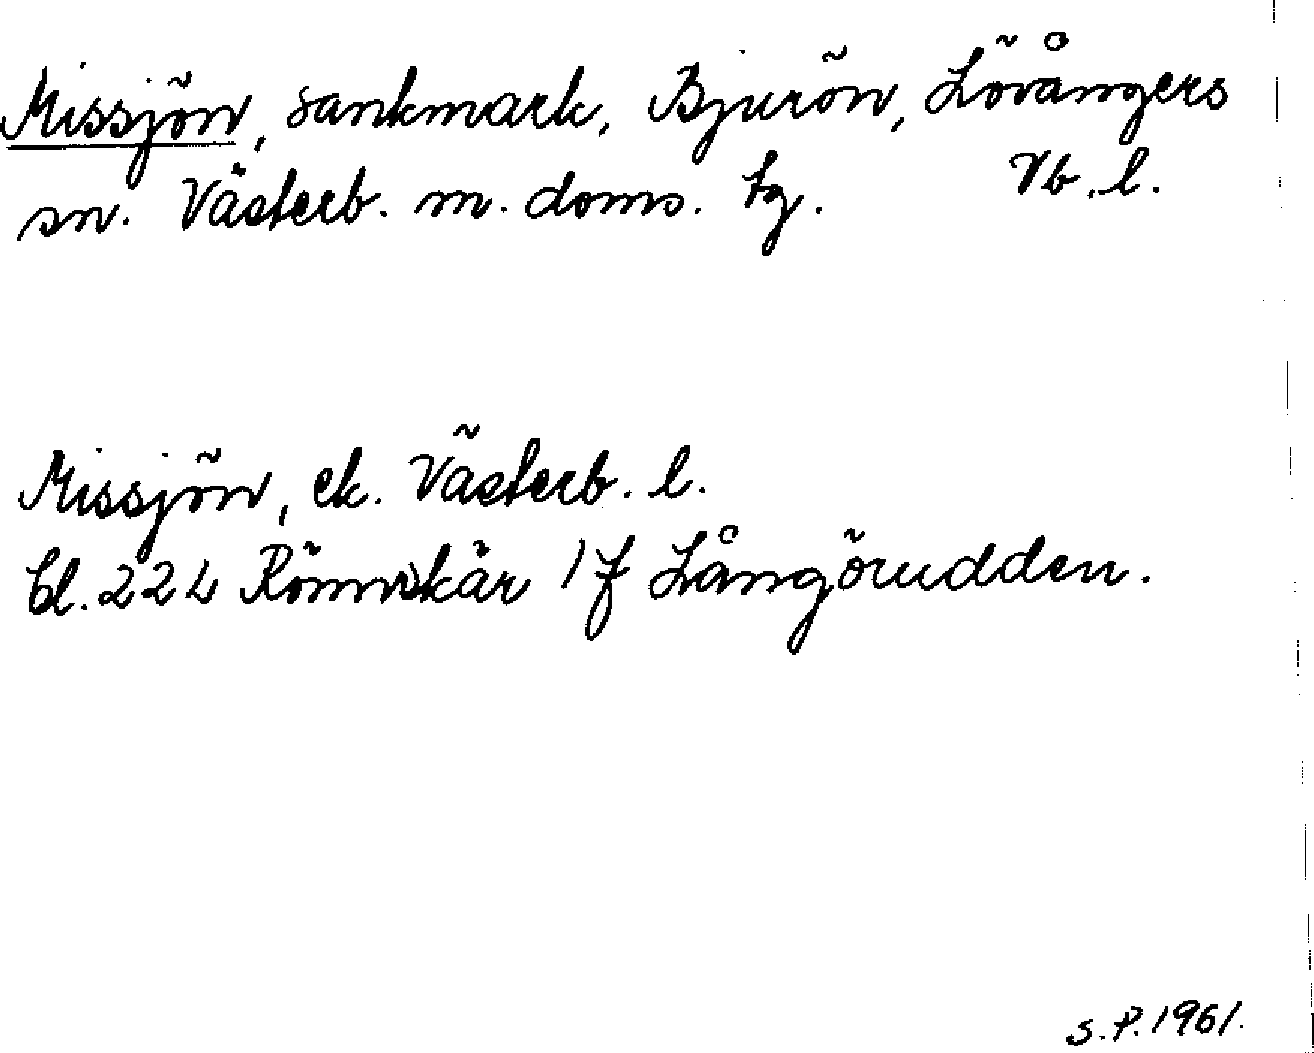 Missjön, sankmark, Bjurön, Lövångers
sn. Västerb. m. doms. tg. Vb. l.
Missjön, ek. Västerb. l.
bl. 22 L Rönnskär 1 f Långörudden.
S.P. 1961.